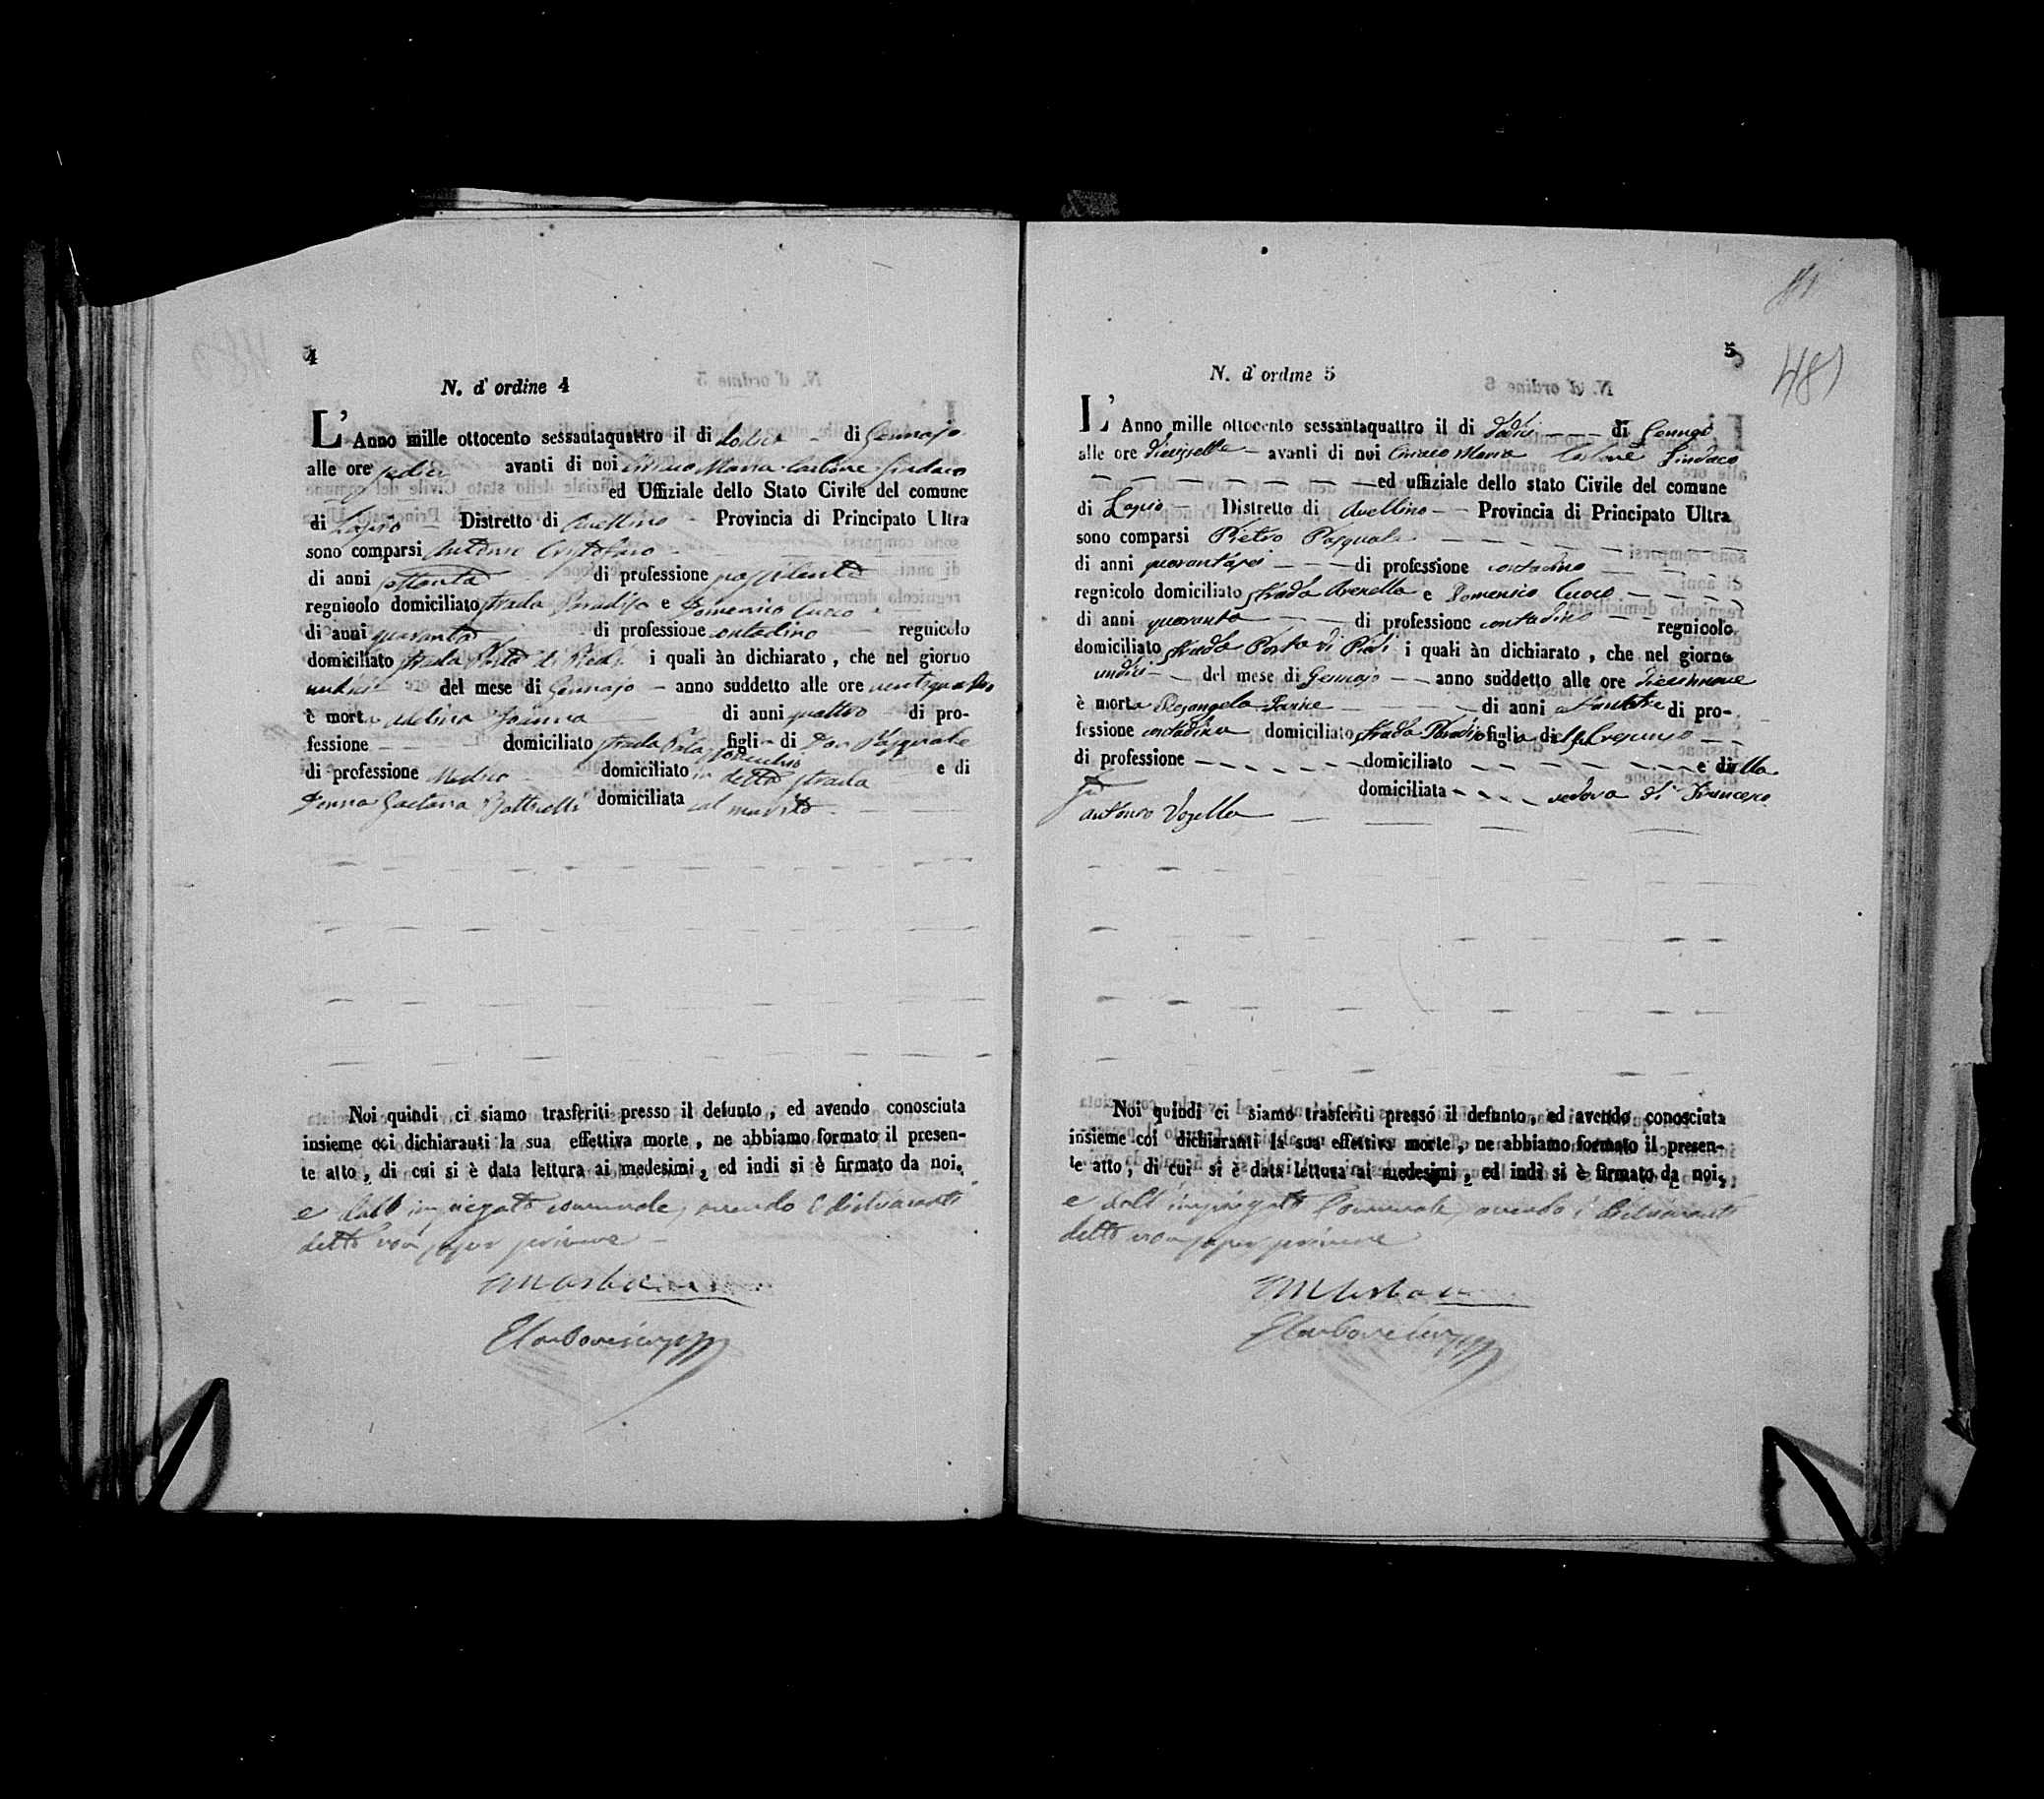 4
N. d' ordine 4
L' Anno mille ottocento sessantaquattro il di dodici di Gennajo
alle ore sedici avanti di noi Ciriaco Maria Carbone Sindaco
ed Uffiziale dello Stato Civile del comune
di Lapio Distretto di Avellino Provincia di Principato Ultra
sono comparsi Antonio
di anni settanta di professione
regnicolo domiciliato strada Paradiso e Domenico Cuoco
di anni quaranta di professione contadino regnicolo
domiciliato strada Porta di Piedi i quali àn dichiarato, che nel giorno
undici del mese di Gennajo anno suddetto alle ore ventiquattro
è morta Adelina di anni quattro di pro-
fessione domiciliato strada figlia di Don Pasquale
di professione Medico domiciliato in detta strada e di
Donna Gaetana domiciliata col marito
Noi quindi ci siamo trasferiti presso il defunto, ed avendo conosciuta
insieme coi dichiaranti la sua effettiva morte, ne abbiamo formato il presen-
te atto, di cui si è data lettura ai medesimi, ed indi si è firmato da noi,
e dall' impiegato comunale, avendo i dichiaranti
detto non saper scrivere
5
481
N. d' ordine 5
L' Anno mille ottocento sessantaquattro il di dodici di
alle ore diecisette avanti di noi Ciriaco Maria Carbone Sindaco
ed uffiziale dello stato Civile del comune
di Lapio Distretto di Avellino Provincia di Principato Ultra
sono comparsi Pietro Pasquale
di anni quarantasei di professione contadino
regnicolo domiciliato strada Arenella e Domenico Cuoco
di anni quaranta di professione contadino regnicolo
domiciliato strada Porta di Piedi i quali àn dichiarato, che nel giorno
undici del mese di Gennajo anno suddetto alle ore diecinnove
è morta Rosangela di anni di pro-
fessione contadina domiciliato strada Paradiso figlia del fu Crescenzo
di professione domiciliato e della
fu domiciliata vedova di Francesco
Antonio Vozella
Noi quindi ci siamo trasferiti presso il defunto, ed avendo conosciuta
insieme coi dichiaranti la sua effettiva morte, ne abbiamo formato il presen-
te atto, di cui si è data lettura ai medesimi, ed indi si è firmato da noi,
e dall' impiegato Comunale, avendo i dichiaranti
detto non saper scrivere